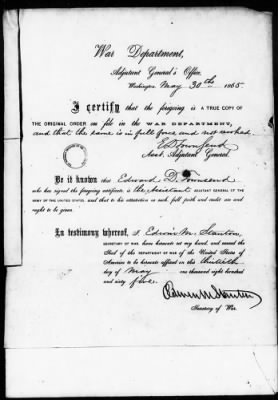 War Department,
Adjutant General's Office,
Washington, May 30th 1865
I certify that the foregoing is A TRUE COPY OF
THE ORIGINAL ORDER on file in the WAR DEPARTMENT,
and that the same is in full force and not revoked.
E D Townsend
Asst. Adjutant General.
Be it known that Edward D. Townsend
who has signed the foregoing certificate, is the Assistant ADJUTANT GENERAL OF THE
ARMY OF THE UNITED STATES, and that to his attestation as such full faith and credit are and
ought to be given.
In testimony whereof, I, Edwin M. Stanton,
SECRETARY OF WAR, have hereunto set my hand, and caused the
Seal of the DEPARTMENT OF WAR of the United States of
America to be hereunto affixed on this thirtieth
day of May one thousand eight hundred
and sixty five.
Edwin M Stanton
Secretary of War.